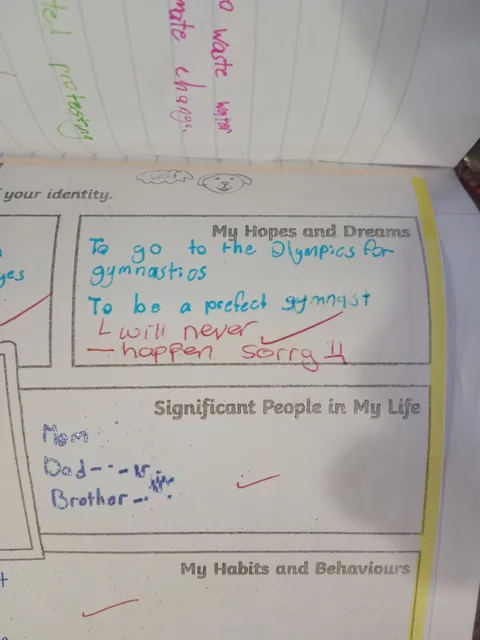 o waste water
mate change.
ted protesting
your identity.
My Hopes and Dreams
To go to the Olympics for
gymnastics
To be a prefect gymnast
will never
happen sorry
yes
Significant People in My Life
Mom
Dad
Brother
My Habits and Behaviours